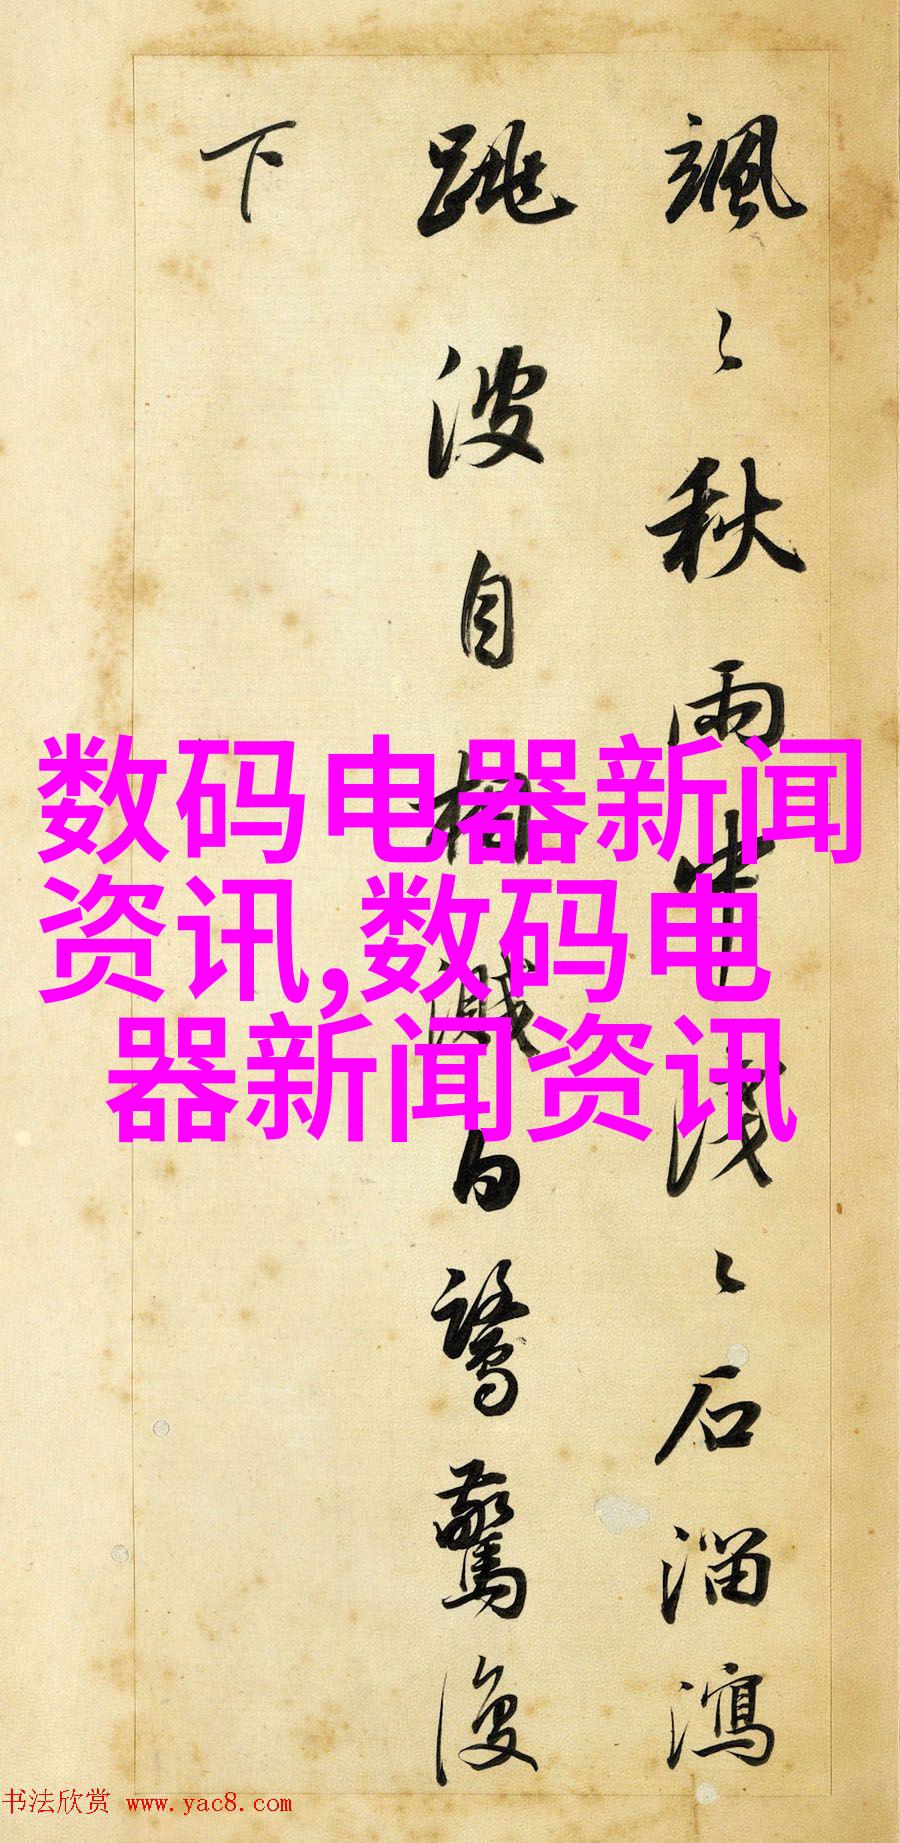 颯〻秋雨中淺〻石溜瀉
跳波自相濺白鷺驚復
下
数码电器新闻
资讯,数码电
器新闻资讯
书法欣赏 www.yac8.com